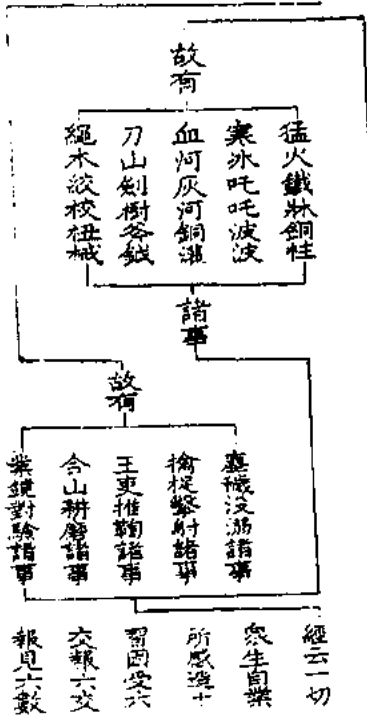 故有
猛火鐵牀銅柱
寒氷吒吒波波
血河灰河銅灌
刀山劍樹斧鉞
繩木絞校杻械
諸事
故有
塵穢沒溺諸事
擒捉擊射諸事
王吏推鞫諸事
合山耕磨諸事
業鏡對驗諸事
經云一切
衆生自業
所感造十
習因受六
交報六交
報見六數